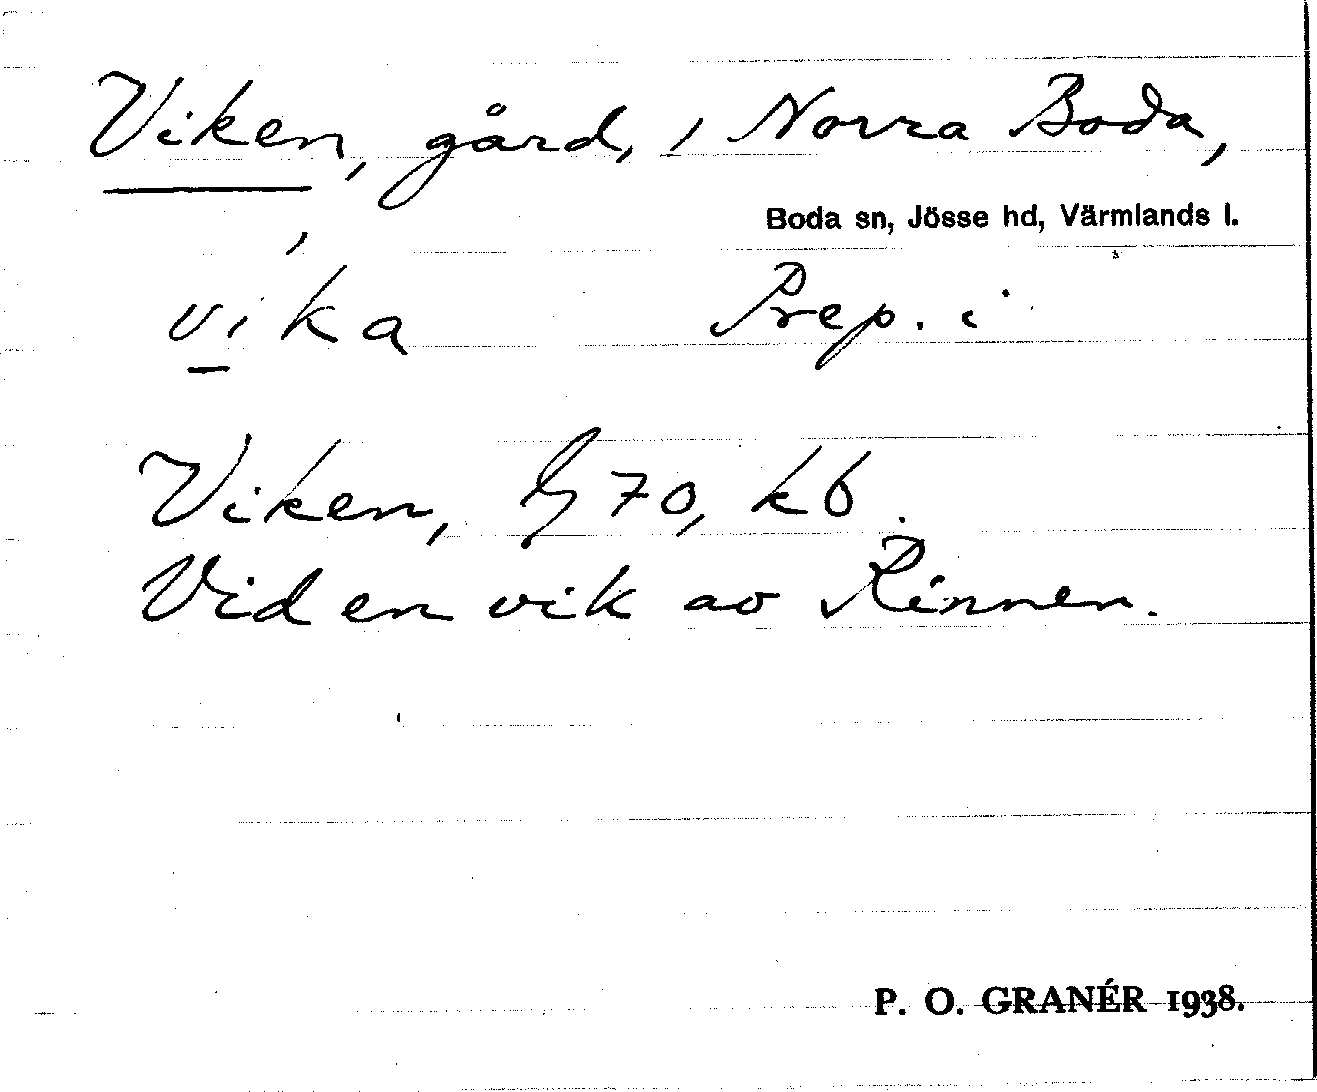 Viken, gård, i Norra Boda,
Boda sn, Jösse hd, Värmlands l.
vika Prep. i
Viken, G 70, kb.
Vid en vik av Rinnen.
P. O. GRANÉR 1938.